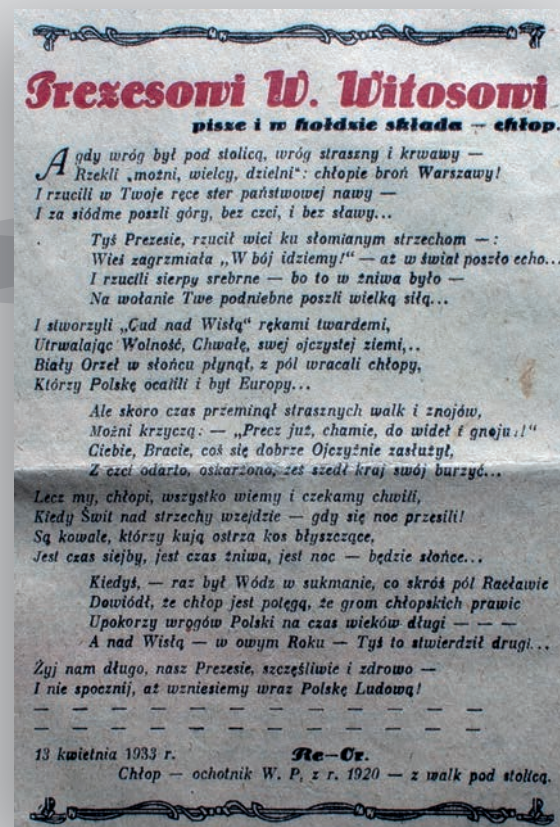 Prezesowi W. Witosowi
pisze i w hołdzie składa — chłop.
A gdy wróg był pod stolicą, wróg straszny i krwawy —
Rzekli „możni, wielcy, dzielni": chłopie broń Warszawy!
I rzucili w Twoje ręce ster państwowej nawy —
I za siódme poszli góry, bez czci, i bez sławy...
Tyś Prezesie, rzucił wici ku słomianym strzechom — :
Wieś zagrzmiała „W bój idziemy!" — aż w świat poszło echo...
I rzucili sierpy srebrne — bo to w żniwa było —
Na wołanie Twe podniebne poszli wielką siłą...
I stworzyli „Cud nad Wisłą" rękami twardemi,
Utrwalając Wolność, Chwałę, swej ojczystej ziemi,..
Biały Orzeł w słońcu płynął, z pól wracali chłopy,
Którzy Polskę ocalili i byt Europy...
Ale skoro czas przeminął strasznych walk i znojów,
Możni krzyczą: — „Precz już, chamie, do wideł i gnoju:!"
Ciebie, Bracie, coś się dobrze Ojczyźnie zasłużył,
Z czci odarto, oskarżono, żeś szedł kraj swój burzyć...
Lecz my, chłopi, wszystko wiemy i czekamy chwili,
Kiedy Świt nad strzechy wzejdzie — gdy się noc przesili!
Są kowale, którzy kują ostrza kos błyszczące,
Jest czas siejby, jest czas żniwa, jest noc — będzie słońce...
Kiedyś, — raz był Wódz w sukmanie, co skróś pól Racławic
Dowiódł, że chłop jest potęgą, że grom chłopskich prawic
Upokorzy wrogów Polski na czas wieków długi — — —
A nad Wisłą — w owym Roku — Tyś to stwierdził drugi...
Żyj nam długo, nasz Prezesie, szczęśliwie i zdrowo —
I nie spocznij, aż wzniesiemy wraz Polskę Ludową!
— — — — — — — — — — — —
— — — — — — — — — — — —
13 kwietnia 1933 r. Re—Cr.
Chłop — ochotnik W. P, z r. 1920 — z walk pod stolicą.